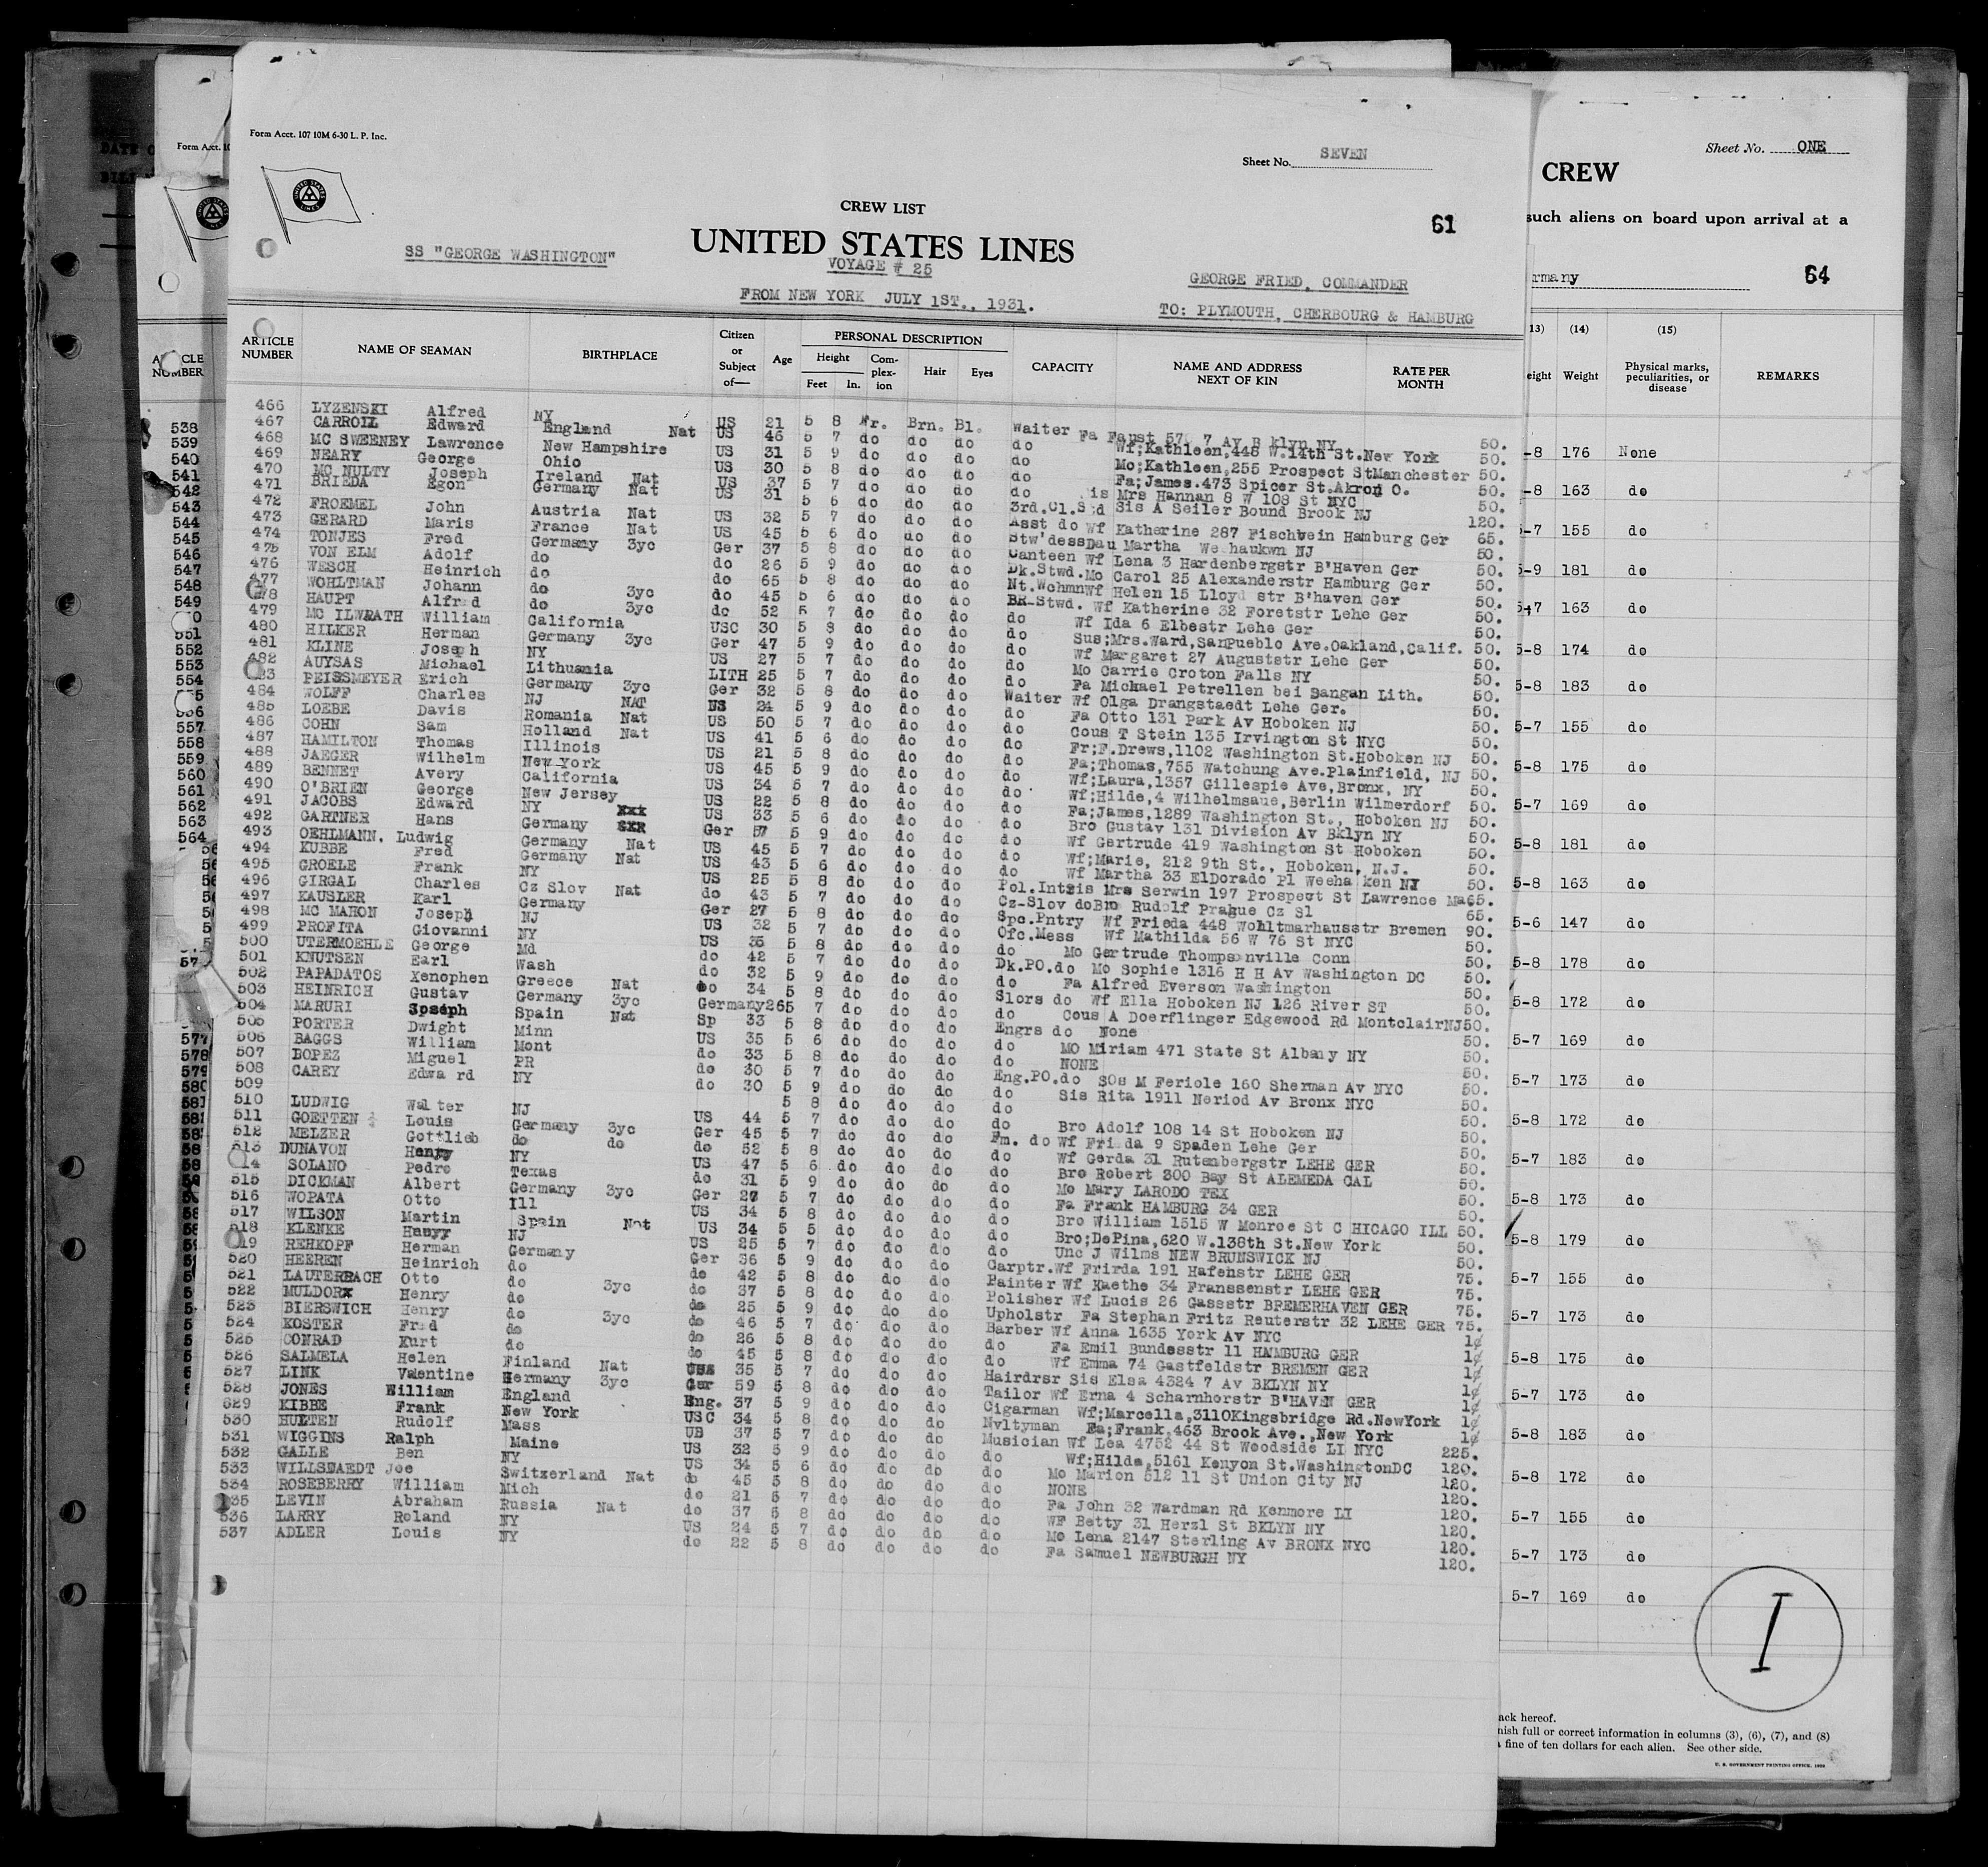 Form Acct. 107 10M 6-30 L. P. Inc.
Sheet No. SEVEN
CREW LIST
61
UNITED STATES LINES
SS "GEORGE WASHINGTON"
VOYAGE # 25
GEORGE FRIED, COMMANDER
FROM NEW YORK JULY 1ST., 1931.
TO: PLYMOUTH, CHERBOURG & HAMBURG
ARTICLE NUMBER NAME OF SEAMAN BIRTHPLACE Citizen or Subject of— Age PERSONAL DESCRIPTION Height Feet In. Complexion Hair Eyes CAPACITY NAME AND ADDRESS NEXT OF KIN RATE PER MONTH
466 LYZENSKI Alfred NY US 21 5 8 Brn. Bl. Waiter 50.
467 CARROLL Edward England Nat US 46 5 7 do do do do Wf;Kathleen,448 W.14th St.New York 50.
468 MC SWEENEY Lawrence New Hampshire US 31 5 9 do do do do Mo;Kathleen,255 Prospect StManchester 50.
469 NEARY George Ohio US 30 5 8 do do do do Fa;James.473 Spicer St.Akron O. 50.
470 MC NULTY Joseph Ireland Nat US 37 5 7 do do do do Mrs Hannan 8 W 108 St NYC 50.
471 BRIEDA Egon Germany Nat US 31 5 6 do do do 3rd.Cl.Std Sis A Seiler Bound Brook NJ 120.
472 FROEMEL John Austria Nat US 32 5 7 do do do Asst do Wf Katherine 287 Fischbein Hamburg Ger 65.
473 GERARD Maris France Nat US 45 5 6 do do do Stw'dess Dau Martha NJ 50.
474 TONJES Fred Germany 3yc Ger 37 5 8 do do do Canteen Wf Lena 3 Hardenbergstr B'Haven Ger 50.
475 VON ELM Adolf do do 26 5 9 do do do Dk.Stwd.Mo Carol 25 Alexanderstr Hamburg Ger 50.
476 WESCH Heinrich do do 65 5 8 do do do Nt.Wchmn Wf Helen 15 Lloyd str B'haven Ger 50.
477 WOHLTMAN Johann do 3yc do 45 5 6 do do do BR-Stwd. Wf Katherine 32 Foretstr Lehe Ger 50.
478 HAUPT Alfred do 3yc do 52 5 7 do do do do Wf Ida 6 Elbestr Lehe Ger 50.
479 MC ILWRATH William California USC 30 5 8 do do do do Sus;Mrs.Ward,SanPueblo Ave.Oakland,Calif. 50.
480 HILKER Herman Germany 3yc Ger 47 5 9 do do do do Wf Margaret 27 Auguststr Lehe Ger 50.
481 KLINE Joseph NY US 27 5 7 do do do do Mo Carrie Croton Falls NY 50.
482 AUYSAS Michael Lithuania LITH 25 5 7 do do do do Fa Michael Petrellen bei Sangan Lith. 50.
483 PEISSMEYER Erich Germany 3yc Ger 32 5 8 do do do Waiter Wf Olga Drangstaedt Lehe Ger. 50.
484 WOLFF Charles NJ NAT US 24 5 9 do do do do Fa Otto 131 Park Av Hoboken NJ 50.
485 LOEBE Davis Romania Nat US 50 5 7 do do do do Cous T Stein 135 Irvington St NYC 50.
486 COHN Sam Holland Nat US 41 5 6 do do do do Fr;F.Drews,1102 Washington St.Hoboken NJ 50.
487 HAMILTON Thomas Illinois US 21 5 8 do do do do Fa;Thomas,755 Watchung Ave.Plainfield, NJ 50.
488 JAEGER Wilhelm New York US 45 5 9 do do do do Wf;Laura,1357 Gillespie Ave,Bronx, NY 50.
489 BENNET Avery California US 34 5 7 do do do do Wf;Hilde,4 Wilhelmsaue,Berlin Wilmerdorf 50.
490 O'BRIEN George New Jersey US 22 5 8 do do do do Fa;James,1289 Washington St., Hoboken NJ 50.
491 JACOBS Edward NY US 33 5 6 do do do do Bro Gustav 131 Division Av Bklyn NY 50.
492 GARTNER Hans Germany Ger 37 5 9 do do do do Wf Gertrude 419 Washington St Hoboken 50.
493 OEHLMANN, Ludwig Germany Nat US 45 5 7 do do do do Wf;Marie, 212 9th St., Hoboken, N.J. 50.
494 KUBBE Fred Germany Nat US 43 5 6 do do do do Wf Martha 33 ElDorado Pl Weehawken NJ 50.
495 GROELE Frank NY US 25 5 8 do do do Pol.Int Sis Mrs Serwin 197 Prospect St Lawrence Ma 65.
496 GIRGAL Charles Cz Slov Nat do 43 5 7 do do do Cz-Slov do Bro Rudolf Prague Cz Sl 65.
497 KAUSLER Karl Germany Ger 27 5 8 do do do Spc.Pntry Wf Frieda 448 Wohltmarhausstr Bremen 90.
498 MC MAHON Joseph NJ US 32 5 7 do do do Ofc.Mess Wf Mathilda 56 W 76 St NYC 50.
499 PROFITA Giovanni NY US 35 5 8 do do do do Mo Gertrude Thompsonville Conn 50.
500 UTERMOEHLE George Md do 42 5 7 do do do Dk.PO.do Mo Sophie 1316 H H Av Washington DC 50.
501 KNUTSEN Earl Wash do 32 5 9 do do do do Fa Alfred Everson Washington 50.
502 PAPADATOS Xenophen Greece Nat do 34 5 8 do do do Slors do Wf Ella Hoboken NJ 126 River ST 50.
503 HEINRICH Gustav Germany 3yc Germany 26 5 7 do do do do Cous A Doerflinger Edgewood Rd MontclairNJ 50.
504 MARURI Joseph Spain Nat Sp 33 5 8 do do do Engrs do None 50.
505 PORTER Dwight Minn US 35 5 6 do do do do MO Miriam 471 State St Albany NY 50.
506 BAGGS William Mont do 33 5 8 do do do do NONE 50.
507 LOPEZ Miguel PR do 30 5 7 do do do Eng.PO.do M Feriole 160 Sherman Av NYC 50.
508 CAREY Edward NY do 30 5 9 do do do do Sis Rita 1911 Neriod Av Bronx NYC 50.
509 5 8 do do do do
510 LUDWIG Walter NJ US 44 5 7 do do do do Bro Adolf 108 14 St Hoboken NJ 50.
511 GOETTEN Louis Germany 3yc Ger 45 5 7 do do do Fm. do Wf Frieda 9 Spaden Lehe Ger 50.
512 MELZER Gottlieb do do do 52 5 8 do do do do Wf Gerda 31 Rutenbergstr LEHE GER 50.
513 DUNAVON Henry NY US 47 5 6 do do do do Bro Robert 300 Bay St ALEMEDA CAL 50.
514 SOLANO Pedro Texas do 31 5 9 do do do do Mo Mary LARODO TEX 50.
515 DICKMAN Albert Germany 3yc Ger 27 5 7 do do do do Fa Frank HAMBURG 34 GER 50.
516 WOPATA Otto Ill US 34 5 8 do do do do Bro William 1515 W Monroe St CHICAGO ILL 50.
517 WILSON Martin Spain Nat US 34 5 5 do do do do Bro;DePina,620 W.138th St.New York 50.
518 KLENKE Harry NJ US 25 5 7 do do do do Unc J Wilms NEW BRUNSWICK NJ 50.
519 REHKOPF Herman Germany Ger 36 5 9 do do do Carptr. Wf Frirda 191 Hafenstr LEHE GER 75.
520 HEEREN Heinrich do do 42 5 8 do do do Painter Wf Kaethe 34 Franssenstr LEHE GER 75.
521 LAUTERBACH Otto do 3yc do 37 5 8 do do do Polisher Wf Lucis 26 Gassstr BREMERHAVEN GER 75.
522 MULDOR Henry do do 25 5 9 do do do Upholstr Fa Stephan Fritz Reuterstr 32 LEHE GER 75.
523 BIERSWICH Henry do 3yc do 46 5 7 do do do Barber Wf Anna 1635 York Av NYC 1¢
524 KOSTER Fred do do 26 5 8 do do do do Fa Emil Bundesstr 11 HAMBURG GER 1¢
525 CONRAD Kurt do do 45 5 8 do do do do Wf Emma 74 Gastfeldstr BREMEN GER 1¢
526 SALMELA Helen Finland Nat 35 5 7 do do do Hairdrsr Sis Elsa 4324 7 Av BKLYN NY 1¢
527 LINK Valentine Germany 3yc Ger 59 5 8 do do do Tailor Wf Erna 4 Scharnhorstr B'HAVEN GER 1¢
528 JONES William England Eng. 37 5 9 do do do Cigarman Wf;Marcella,3110Kingsbridge Rd.NewYork 1¢
529 KIBBE Frank New York USC 34 5 8 do do do Nvltyman Fa;Frank,463 Brook Ave.,New York 1¢
530 HULTEN Rudolf Mass US 37 5 7 do do do Musician Wf Lea 4752 44 St Woodside LI NYC 225.
531 WIGGINS Ralph Maine US 32 5 9 do do do do Wf;Hilda,5161 Kenyon St.WashingtonDC 120.
532 GALLE Ben NY US 34 5 6 do do do do Mo Marion 512 11 St Union City NJ 120.
533 WILLSTAEDT Joe Switzerland Nat do 45 5 8 do do do do NONE 120.
534 ROSEBERRY William Mich do 21 5 7 do do do do Fa John 32 Wardman Rd Kenmore LI 120.
535 LEVIN Abraham Russia Nat do 37 5 8 do do do do WF Betty 31 Herzl St BKLYN NY 120.
536 LARRY Roland NY US 24 5 7 do do do do Mo Lena 2147 Sterling Av BRONX NYC 120.
537 ADLER Louis NY do 22 5 8 do do do do Fa Samuel NEWBURGH NY 120.
Sheet No. ONE
CREW
such aliens on board upon arrival at a
64
(14) (15)
Weight Physical marks, peculiarities, or disease REMARKS
-8 176 None
-8 163 do
-7 155 do
5-9 181 do
5-7 163 do
5-8 174 do
5-8 183 do
5-7 155 do
5-8 175 do
5-7 169 do
5-8 181 do
5-8 163 do
5-6 147 do
5-8 178 do
5-8 172 do
5-7 169 do
5-7 173 do
5-8 172 do
5-7 183 do
5-8 173 do
5-8 179 do
5-7 155 do
5-7 173 do
5-8 175 do
5-7 173 do
5-8 183 do
5-8 172 do
5-7 155 do
5-7 173 do
5-7 169 do
I
ack hereof.
nish full or correct information in columns (3), (6), (7), and (8)
a fine of ten dollars for each alien. See other side.
U. S. GOVERNMENT PRINTING OFFICE